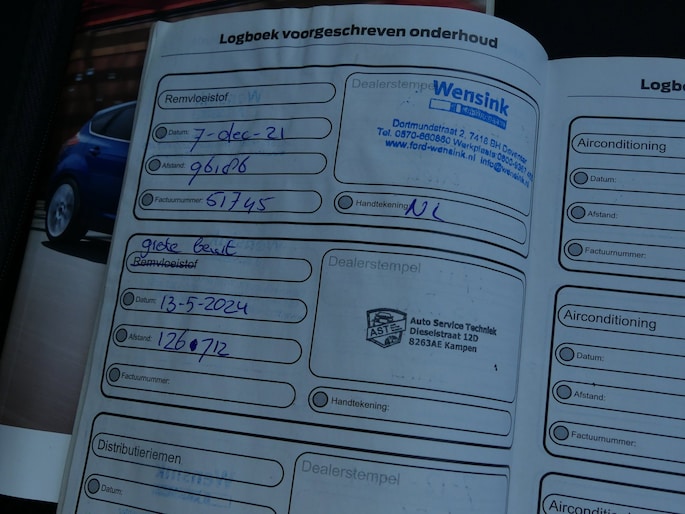 Logboek voorgeschreven onderhoud
Remvloeistof
Datum: 7-dec-21
Afstand: 96186
Factuurnummer: 61745
Dealerstempel
Wensink
Dortmundstraat 2, 7418 BH Deventer
Tel. 0570-660860 Werkplaats 0800-9367
www.ford-wensink.nl info@wensink.nl
Handtekening:
grote beurt
Remvloeistof
Datum: 13-5-2024
Afstand: 126.712
Factuurnummer:
Dealerstempel
AST
Auto Service Techniek
Dieselstraat 12D
8263AE Kampen
Handtekening:
Distributieriemen
Datum:
Dealerstempel
Wensink
Airconditioning
Datum:
Afstand:
Factuurnummer:
Airconditioning
Datum:
Afstand:
Factuurnummer: